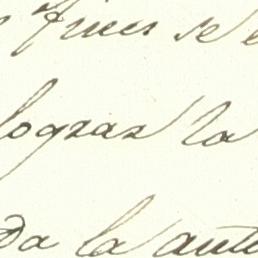 fines se e
lograr la
da la auto